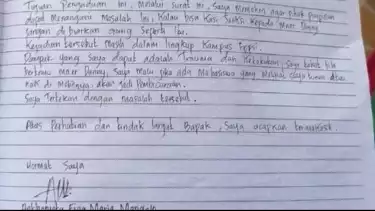 Tujuan Pengaduan ini, melalui surat ini, Saya memohon agar pihak pimpinan
dapat Menangani Masalah Ini, Kalau bisa Kasi Sanksi Kepada Maner Danny
Jangan di biarkan orang Seperti itu.
Kejadian tersebut Masih dalam lingkup Kampus
Dampak yang Saya dapat adalah Trauma dan Ketakutan, Saya takut bila
bertemu Maner Danny, Saya Malu jika ada Mahasiswa yang Melihat Saya
naik di Mobilnya, akan jadi Pembicaraan.
Saya Tertekan dengan masalah tersebut.
Atas Perhatian dan tindak lanjut Bapak, Saya ucapkan terimakasih.
Hormat Saya
Maria